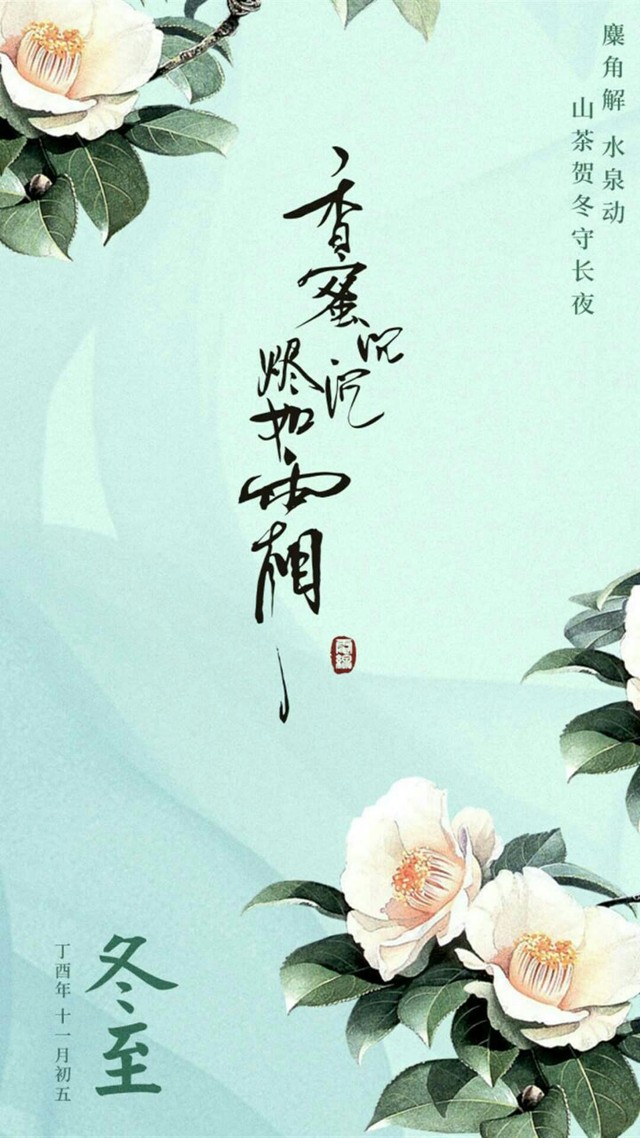 麋角解 水泉动
山茶贺冬守长夜
香蜜沉沉
烬如霜
冬至
丁酉年 十一月初五